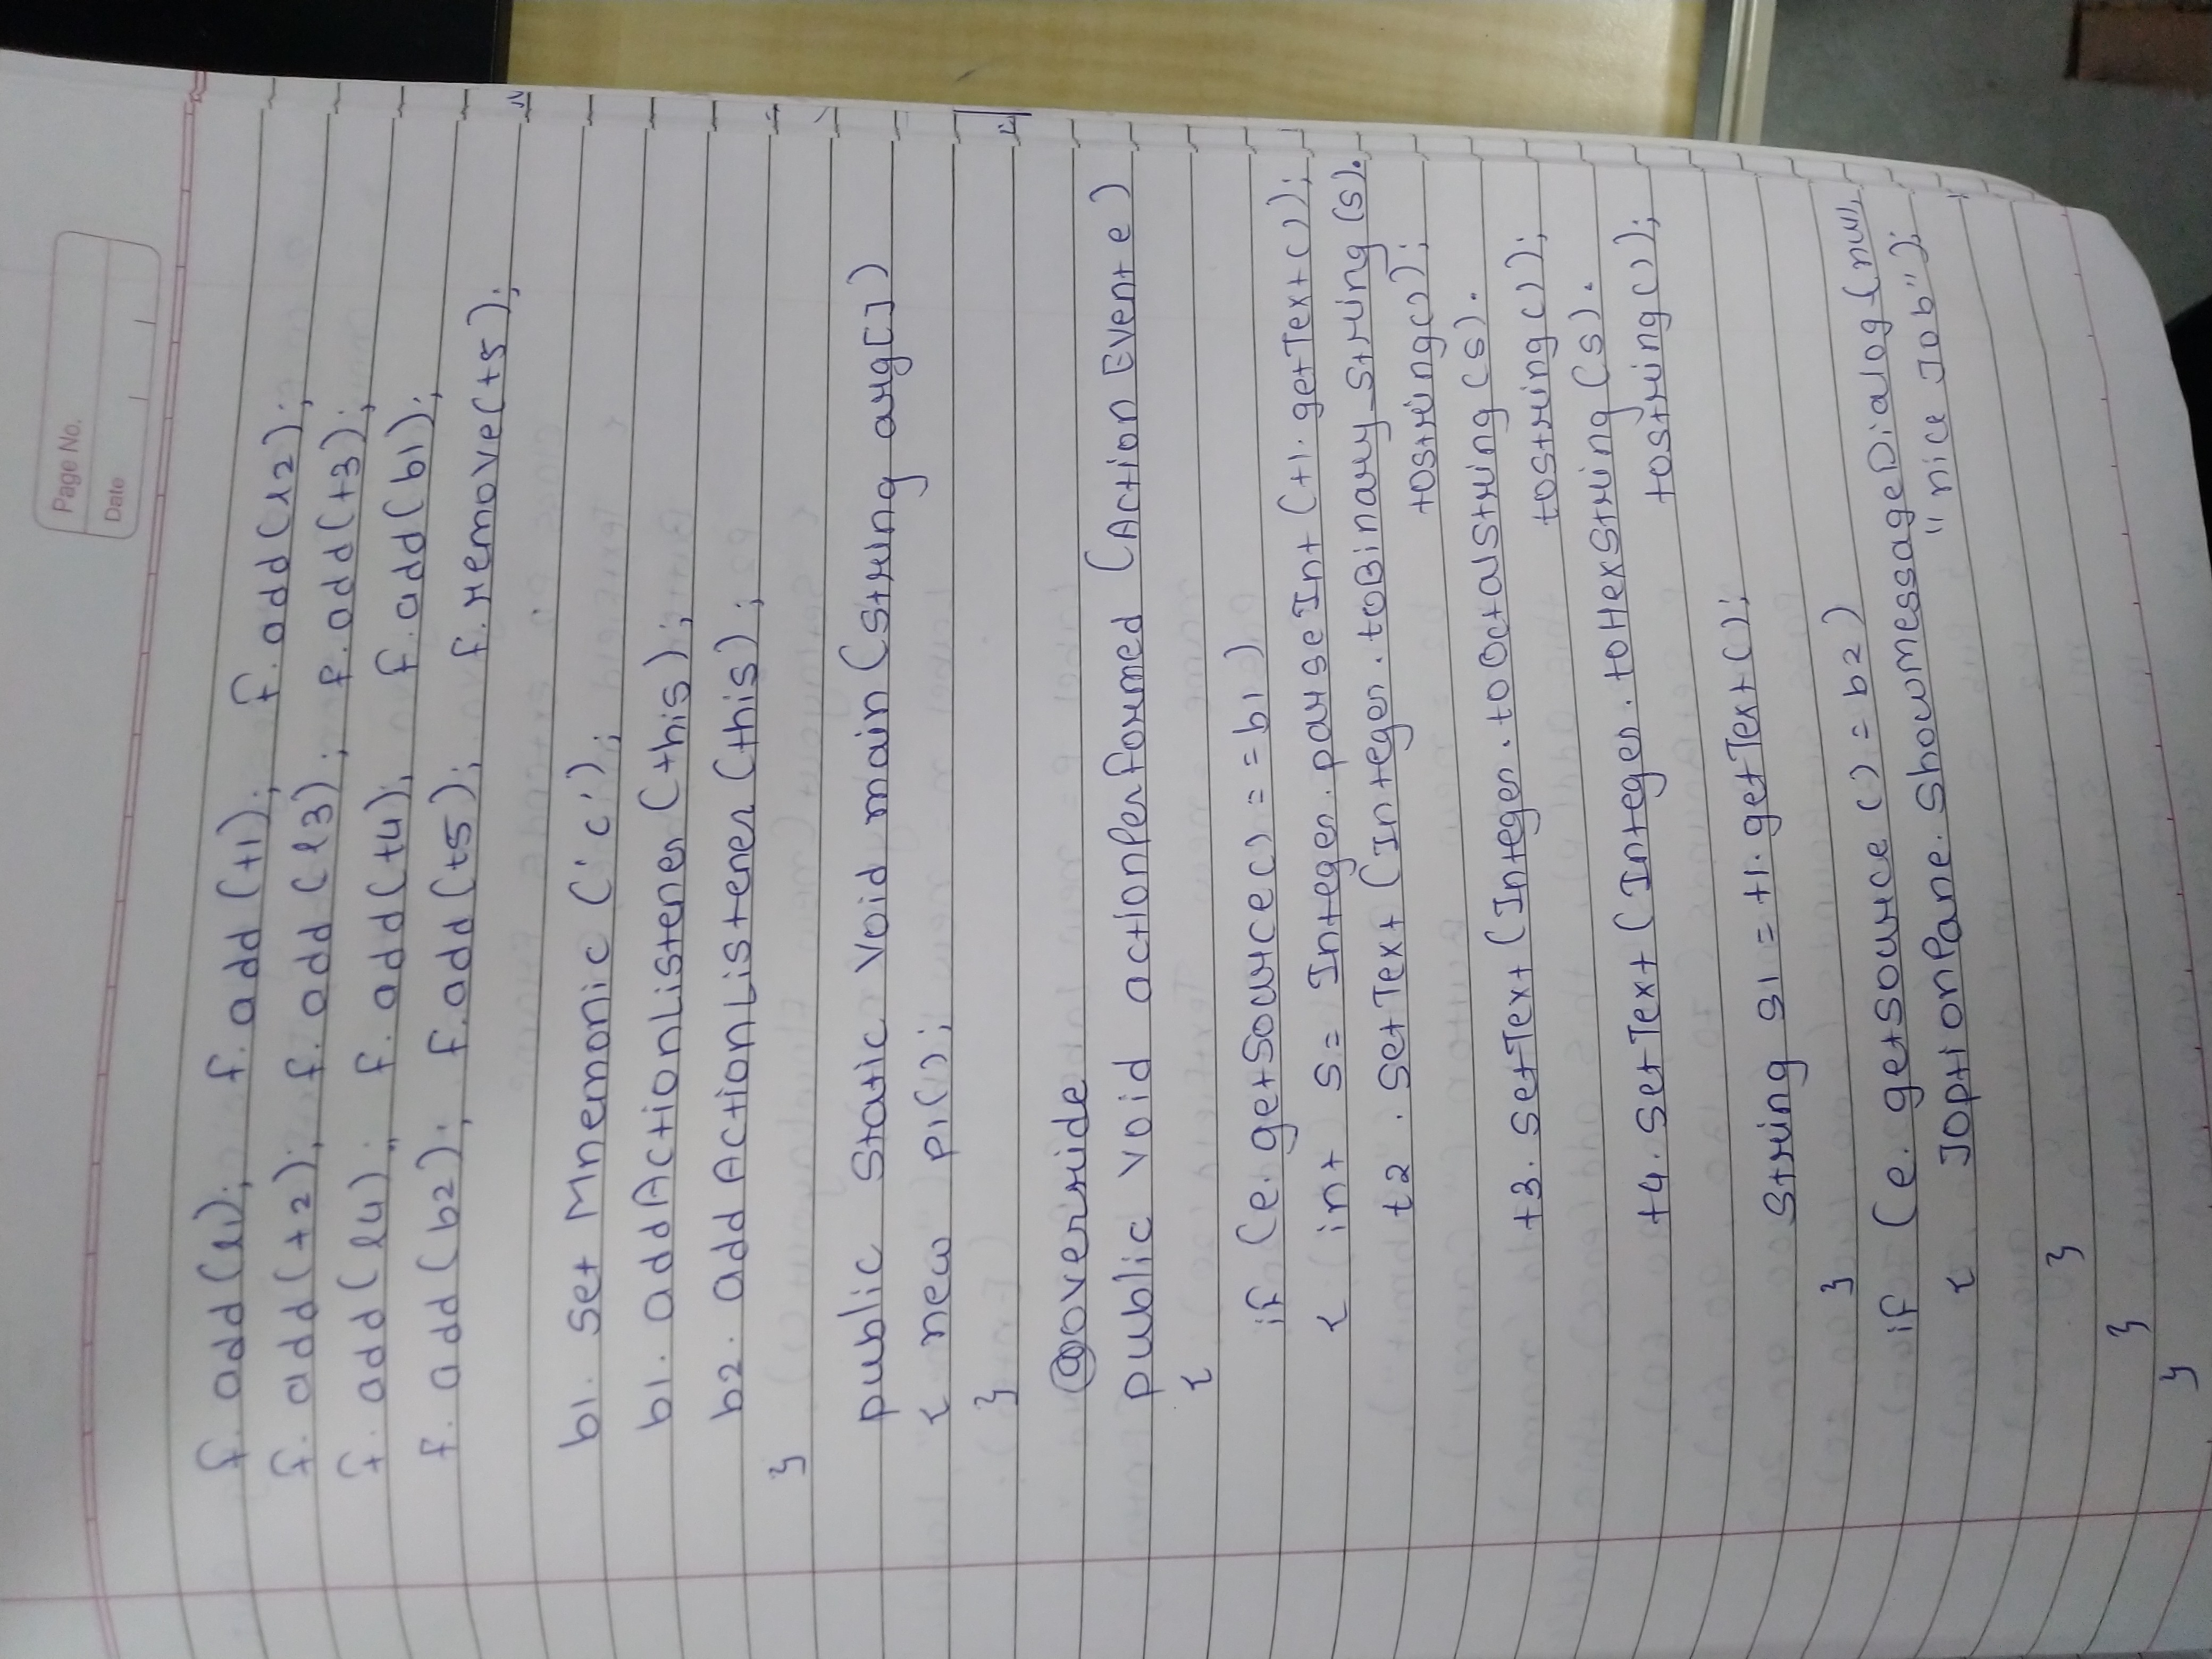 Page No.
Date
f. add(l1); f. add (t1); f. add(l2);
f. add(t2); f. add (l3); f. add(t3);
f. add(l4); f. add(t4); f. add(b1);
f. add(b2); f. add(t5); f. remove(t5);
b1. set Mnemonic ('c');
b1. addActionListener (this);
b2. add ActionListener (this);
}
public static void main (string arg[])
{ new p1();
}
@override
public void actionPerformed (Action Event e)
{
if (e. getSource() = = b1)
{ int s= Integer. parseInt (t1. getText());
t2 . setText (Integer. toBinary String (s).
tostring());
t3. setText (Integer. toOctalString (s).
tostring());
t4. setText (Integer. toHexString (s).
tostring());
string s1 = t1. getText();
}
if (e. getsource () = b2)
{ JoptionPane. showmessageDialog (null,
"nice Job");
}
}
}